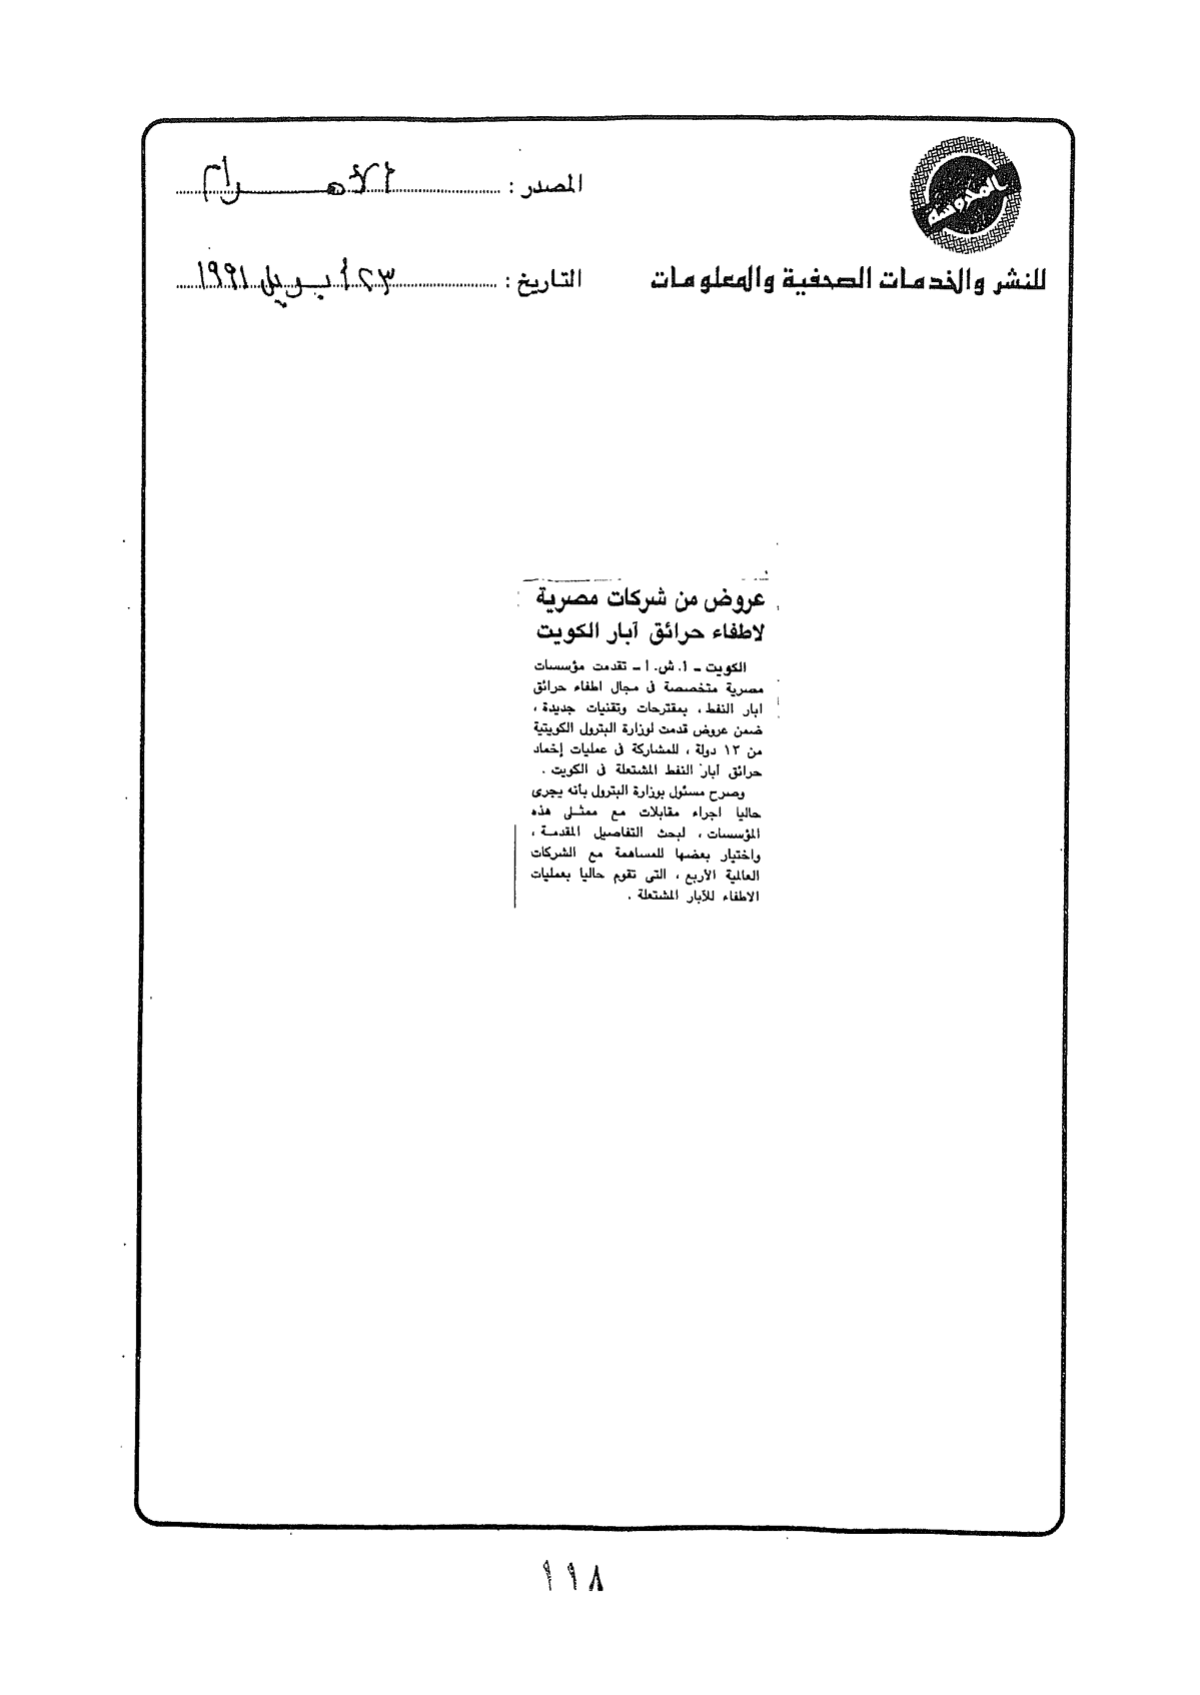 المحروسة
للنشر والخدمات الصحفية والمعلومات
المصدر : الأهرام
التاريخ : ٢٣ أبريل ١٩٩١
عروض من شركات مصرية
لاطفاء حرائق آبار الكويت
الكويت ـ ا. ش. ا ـ تقدمت مؤسسات
مصرية متخصصة فى مجال اطفاء حرائق
ابار النفط ، بمقترحات وتقنيات جديدة ،
ضمن عروض قدمت لوزارة البترول الكويتية
من ١٢ دولة ، للمشاركة فى عمليات إخماد
حرائق آبار النفط المشتعلة فى الكويت .
وصرح مسئول بوزارة البترول بأنه يجرى
حاليا اجراء مقابلات مع ممثلى هذه
المؤسسات ، لبحث التفاصيل المقدمة ،
واختيار بعضها للمساهمة مع الشركات
العالمية الأربع ، التى تقوم حاليا بعمليات
الاطفاء للآبار المشتعلة .
١١٨